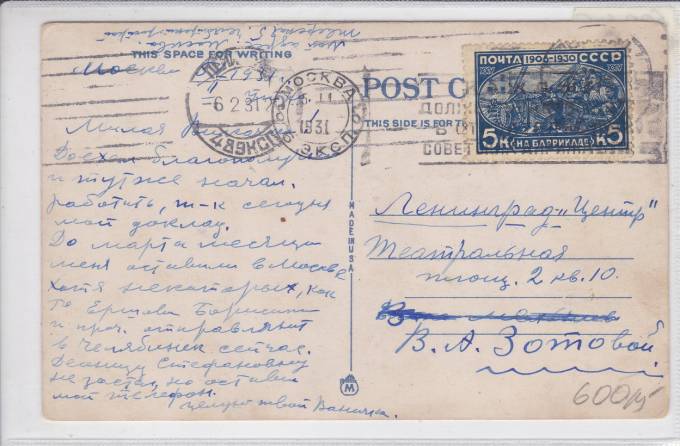 Мой адрес: Москва
Тверская 5 Челябтракторострой
THIS SPACE FOR WRITING
Москва
1931
6 2 31
489КСП
МОСКВА
1931
ЭКСП.
POST C
THIS SIDE IS FOR
ПОЧТА 1905-1930 СССР
5К НА БАРРИКАДЕ К5
ДОЛЖ
СОВЕТ
MADE IN USA
Милая
Доехал благополучно
и тут же начал
работать, т-к сегодня
мой доклад.
До марта месяца
меня оставили в Москве
хотя некоторых, как
то Ершова Борисити
и проч. отправляют
в Челябинск сейчас.
Стефановну
не застал, но оставил
мой телефон.
целую твой Ваничка.
Ленинград-„Центр"
Театральная
площ. 2 кв. 10.
В. А. Зотовой.
M
600р